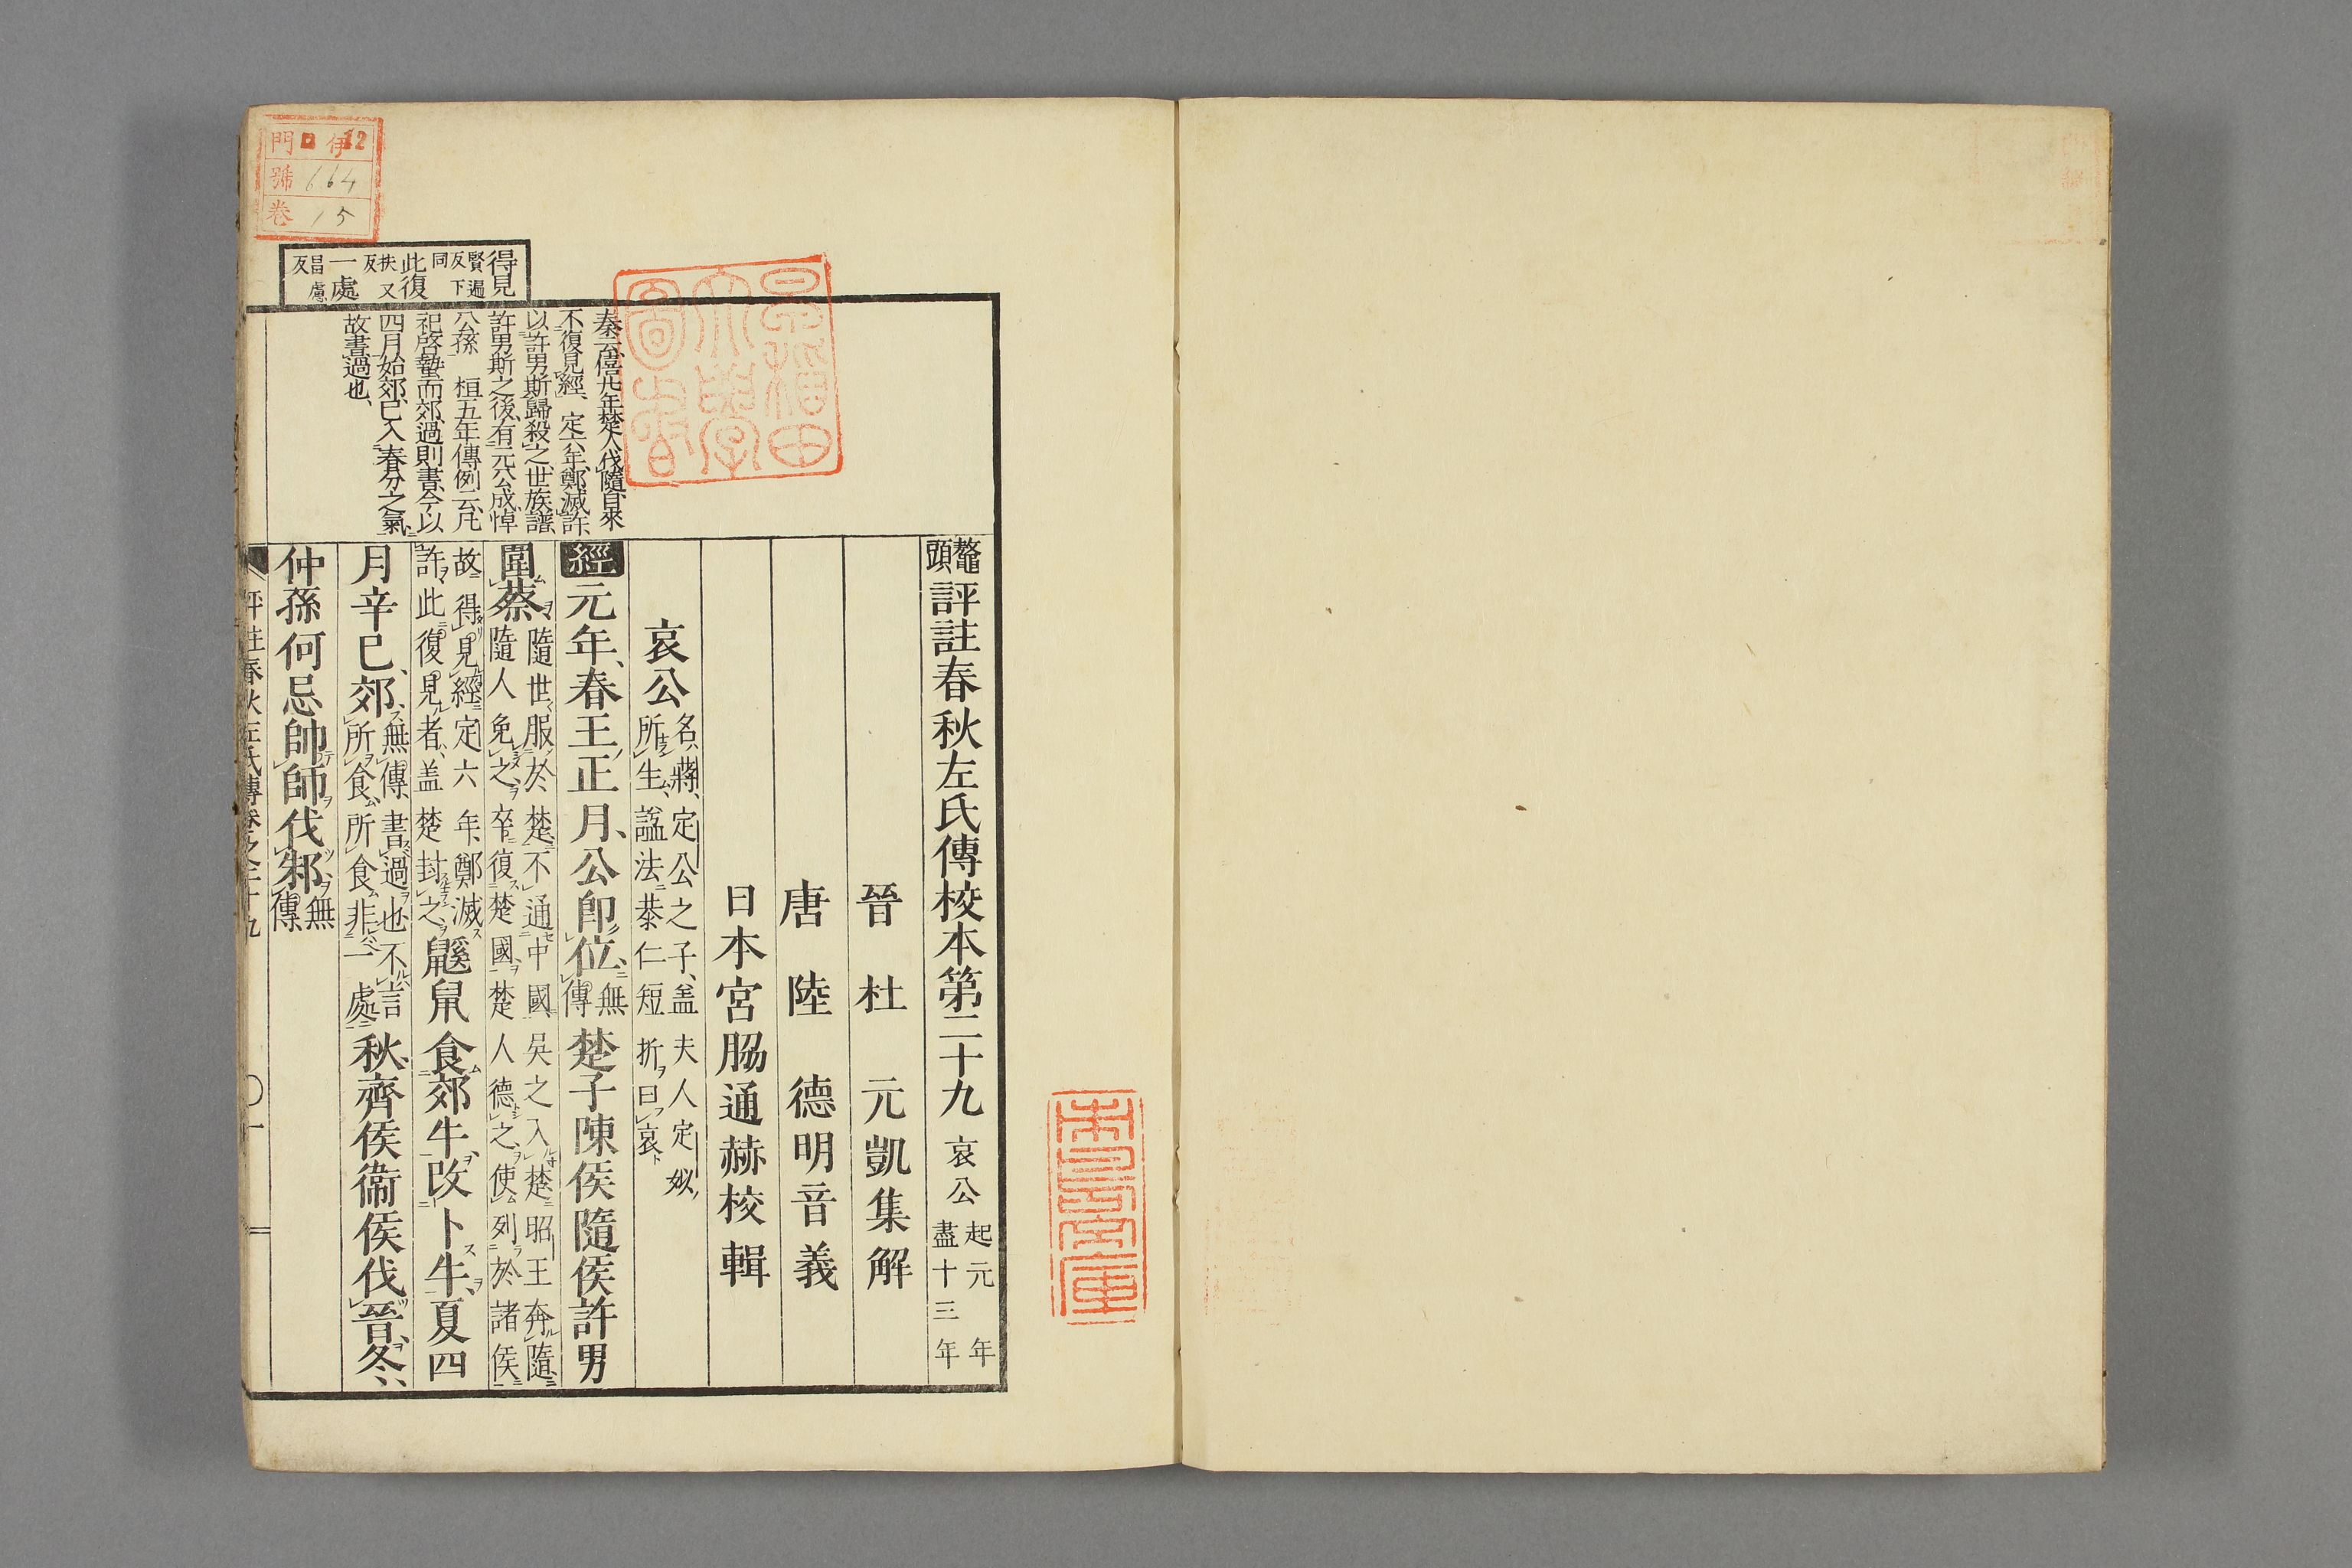 門ロ伊12
號664
巻15
得見
賢遍反下同
此復
扶又反
一處
昌慮反
秦云僖廿年楚人伐隨自來
不復見經、定六年鄭滅許、
以許男斯歸殺之、世族譜、
許男斯之後、有元公成、悼
公孫 桓五年傳例云、凡
祀啓蟄而郊過則書、今以
四月始郊、已入春分之氣
故書過也、
早稻田大學圖書
鼇頭評註春秋左氏傳校本第二十九 哀公 起元年盡十三年
晉 杜 元凱集解
唐 陸 德明音義
日本宮脇通赫校輯
哀公 名蔣、定公之子、蓋夫人定姒所生、諡法恭仁短折曰哀
經元年、春王正月、公卽位、無傳楚子陳侯隨侯許男
圍蔡 隨世服於楚、不通中國、吳之入楚、昭王奔隨、隨人免之、卒復楚國、楚人德之、使列於諸侯
故得見經定六年、鄭滅許、此復見者、蓋楚封之、鼷鼠食郊牛、改卜牛、夏四
月辛巳、郊、無傳、書過也、不言所食、所食非一處秋、齊侯衞侯伐晉、冬、
仲孫何忌帥師伐邾、無傳
評註春秋左氏傳卷之二十九 〇一